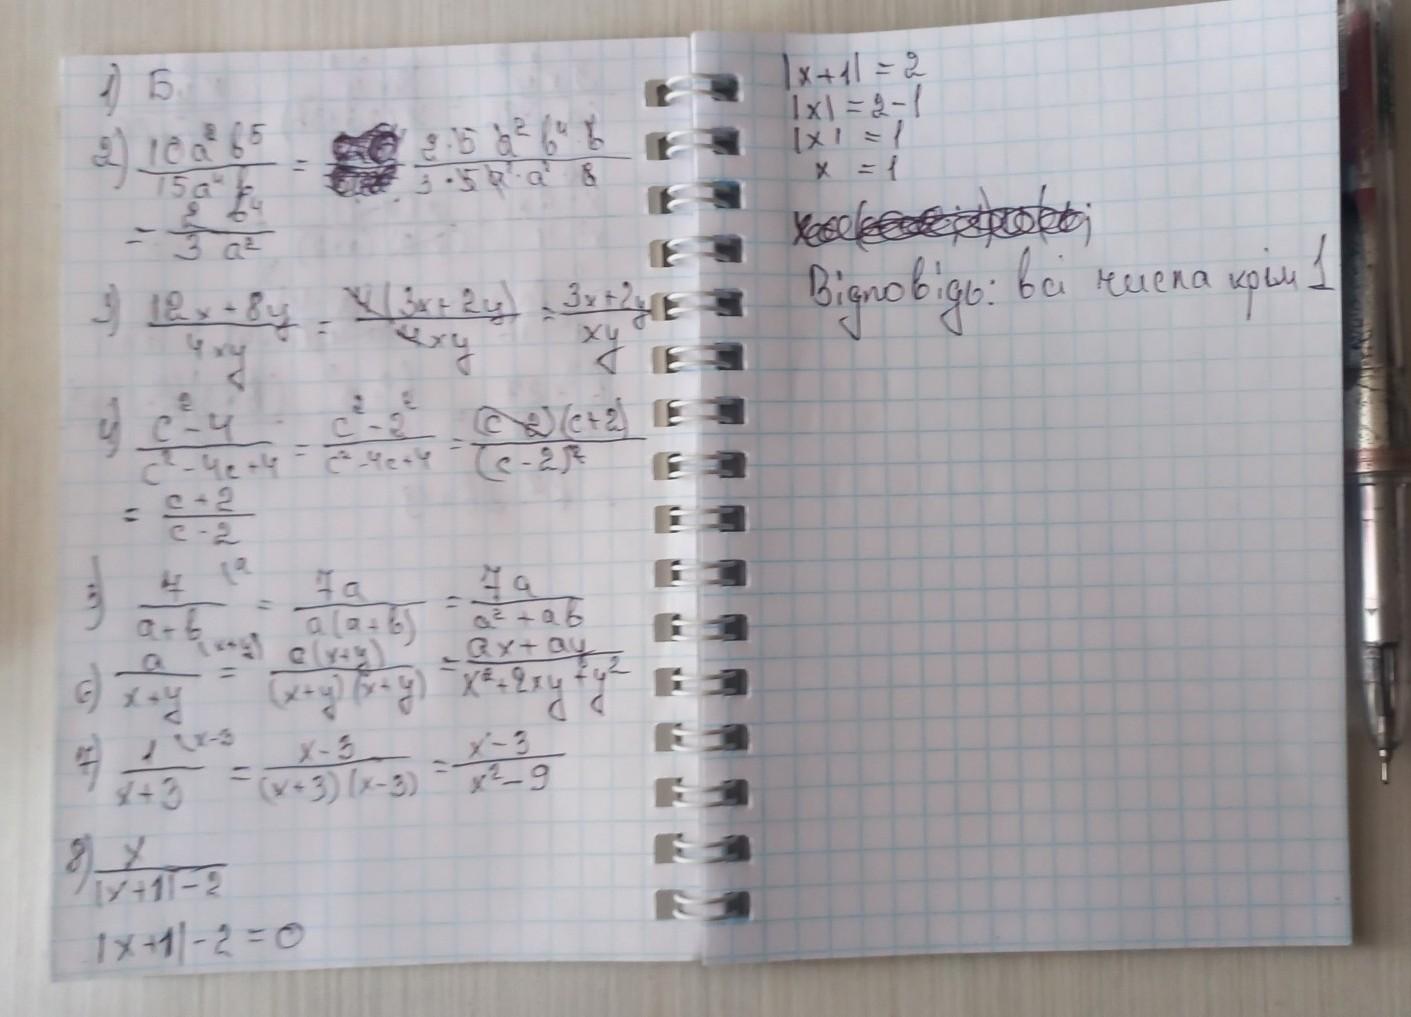 1) Б.
2) 10a²b⁵ / 15a⁴b = 2·5 a² b⁴·b / 3·5 a²·a² b
= 2b⁴ / 3a²
3) 12x+8y / 4xy = 4(3x+2y) / 4xy = 3x+2y / xy
4) c²-4 / c²-4c+4 = c²-2² / c²-4c+4 = (c-2)(c+2) / (c-2)²
= c+2 / c-2
5) 7 / a+b (a = 7a / a(a+b) = 7a / a²+ab
6) a / x+y (x+y) = a(x+y) / (x+y)(x+y) = ax+ay / x²+2xy+y²
7) 1 / x+3 (x-3 = x-3 / (x+3)(x-3) = x-3 / x²-9
8) x / |x+1|-2
|x+1|-2=0
|x+1|=2
|x|=2-1
|x|=1
x=1
Відповідь: всі числа крім 1